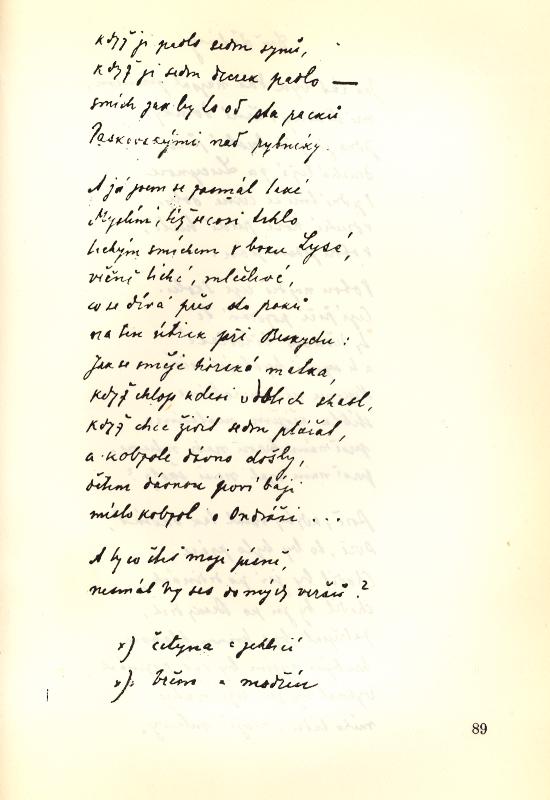 když ji padlo sedm synů,
když ji sedm dcerek padlo —
smích jak by to od sta racků
Paskovskými nad rybníky.
A já jsem se zasmál také
Myslím, též se cosi tchlo
tichým smíchem v boku Lysé,
věčně tiché, mlčelivé,
co se dívá přes sto roků
na ten útisk při Beskydu:
Jak se směje horská matka,
když chlop kdesi v dolech shasl,
když chce živit sedm pláčat,
a kobzole dávno došly,
dětem dávnou poví báji
místo kobzol o Ondráši ...
A ty co čteš moji píseň,
nesmál by ses do mých veršů?
x) četyna = jehličí
x): břčno = modřín
89